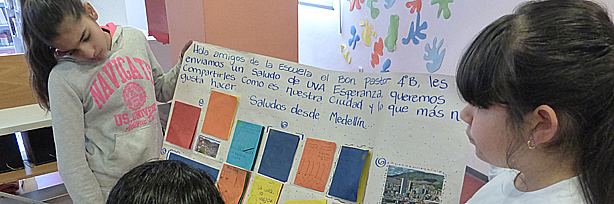 Hola amigos de la Escuela el Bon Pastor 4°B, les
enviamos un Saludo de UVA Esperanza, queremos
Compartirles como es nuestra Ciudad y lo que más n
gusta hacer.
Saludos desde Medellín.
NAVIGATE